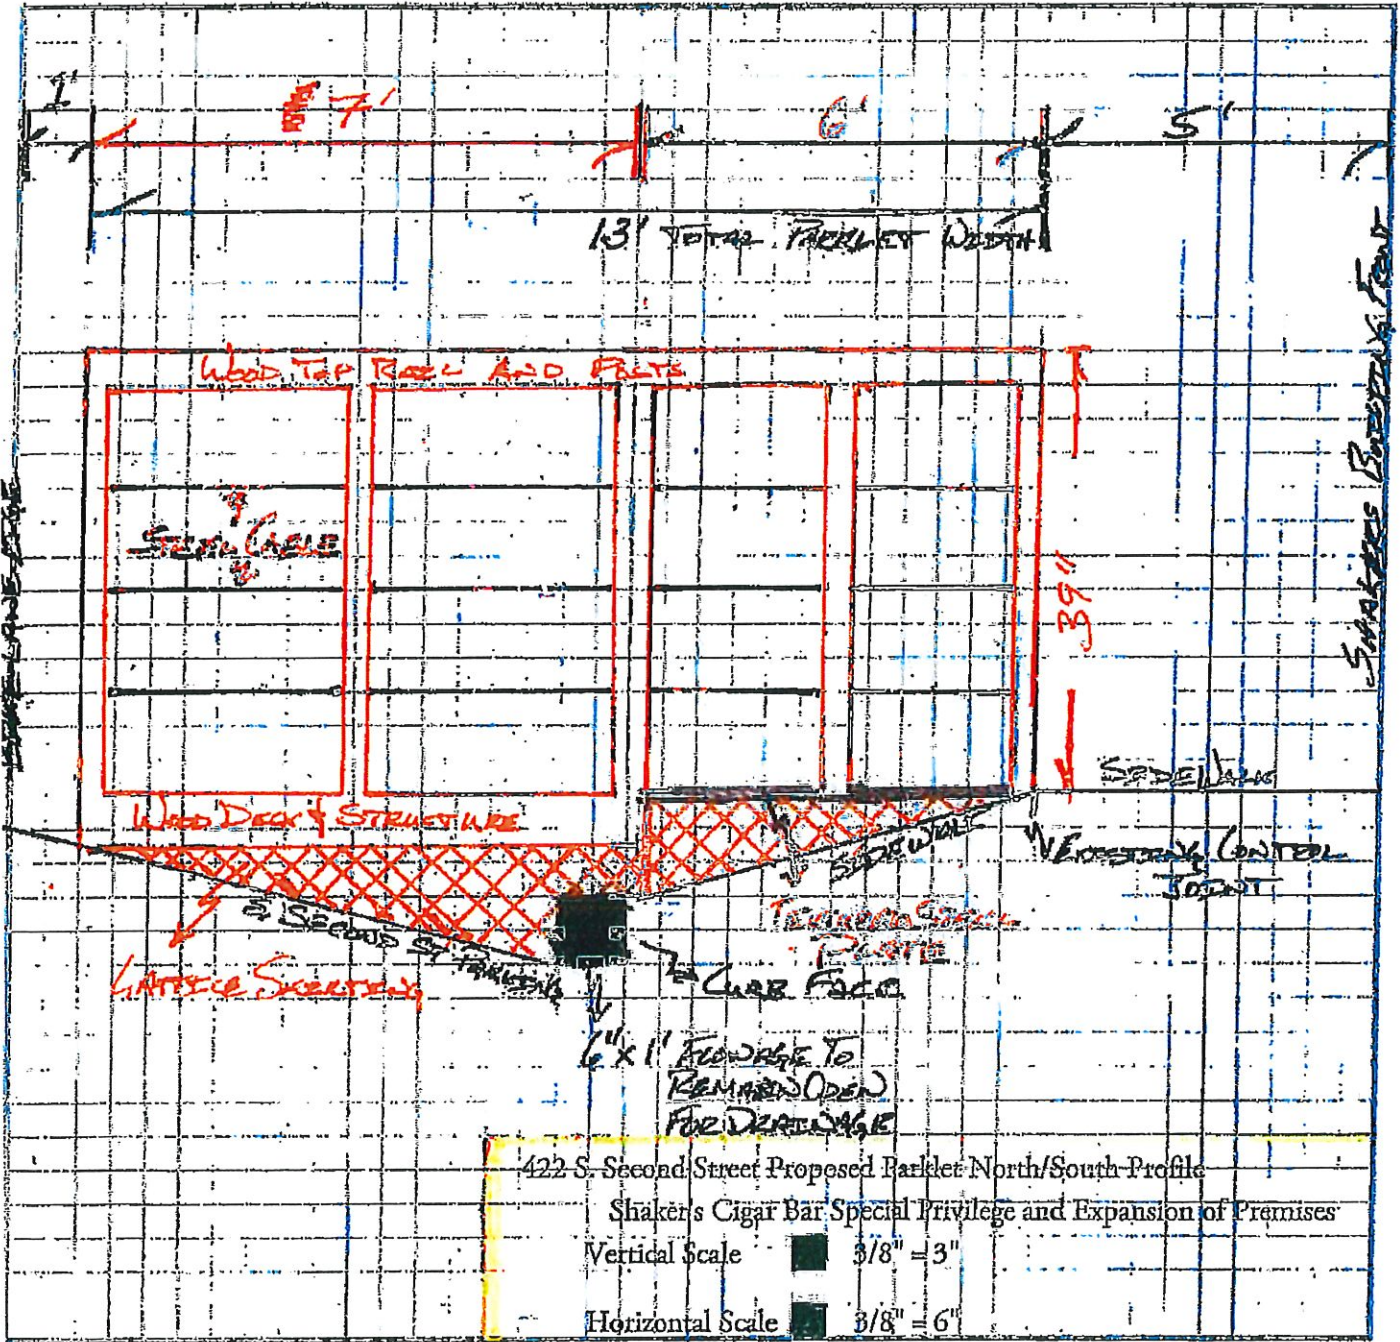 1'
7'
6'
5'
13' TOTAL PARKLET WIDTH
WOOD TOP RAIL AND POSTS
STEEL CABLE
BIKE LANE EDGE
39"
SHAKERS BUILDING FRONT
SIDEWALK
WOOD DECK & STRUCTURE
SIDEWALK
EXISTING CONTROL
JOINT
S. SECOND ST PARKING
STEEL
PLATE
LATTICE SKIRTING
CURB FACE
6" x 1' FLOWAGE TO
REMAIN OPEN
FOR DRAINAGE
422 S. Second Street Proposed Parklet North/South Profile
Shaker's Cigar Bar Special Privilege and Expansion of Premises
Vertical Scale 3/8" = 3"
Horizontal Scale 3/8" = 6"